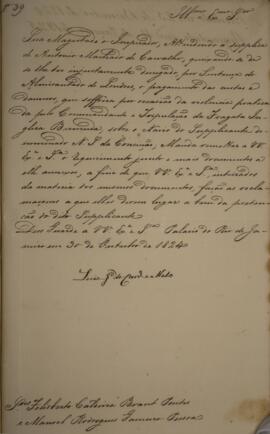 Nº 39
Illmos e Exmos Snres
Sua Magestade o Imperador, Attendendo a supplica
de Antonio Machado de Carvalho, queixando-se de
se lhe ter injustamente denegado, por Sentença do
Almirantado de Londres, o pagamento das custas e
damnos, que soffreu por occasião da violencia pratica-
da pelo Commandante e Tripulação da Fragata In-
gleza Brasiva, sobre o Navio do Supplicante de-
nominado N. S. da Conceição, Manda remetter a VV.
Exas e Sas o requerimento junto e mais documentos a
elle annexos, a fim de que VV. Exas e Sas, inteirados
da materia dos mesmos documentos, fação as recla-
mações a que elles derem lugar a bem da preten-
ção do dito Supplicante.
Deos Guarde a VV. Exas e Sas Palacio do Rio de Ja-
neiro em 30 de Outubro de 1824
Luiz Je de Carvo e Mello
Snres Felisberto Caldeira Brant Pontes
e Manoel Rodrigues Gameiro Pessoa